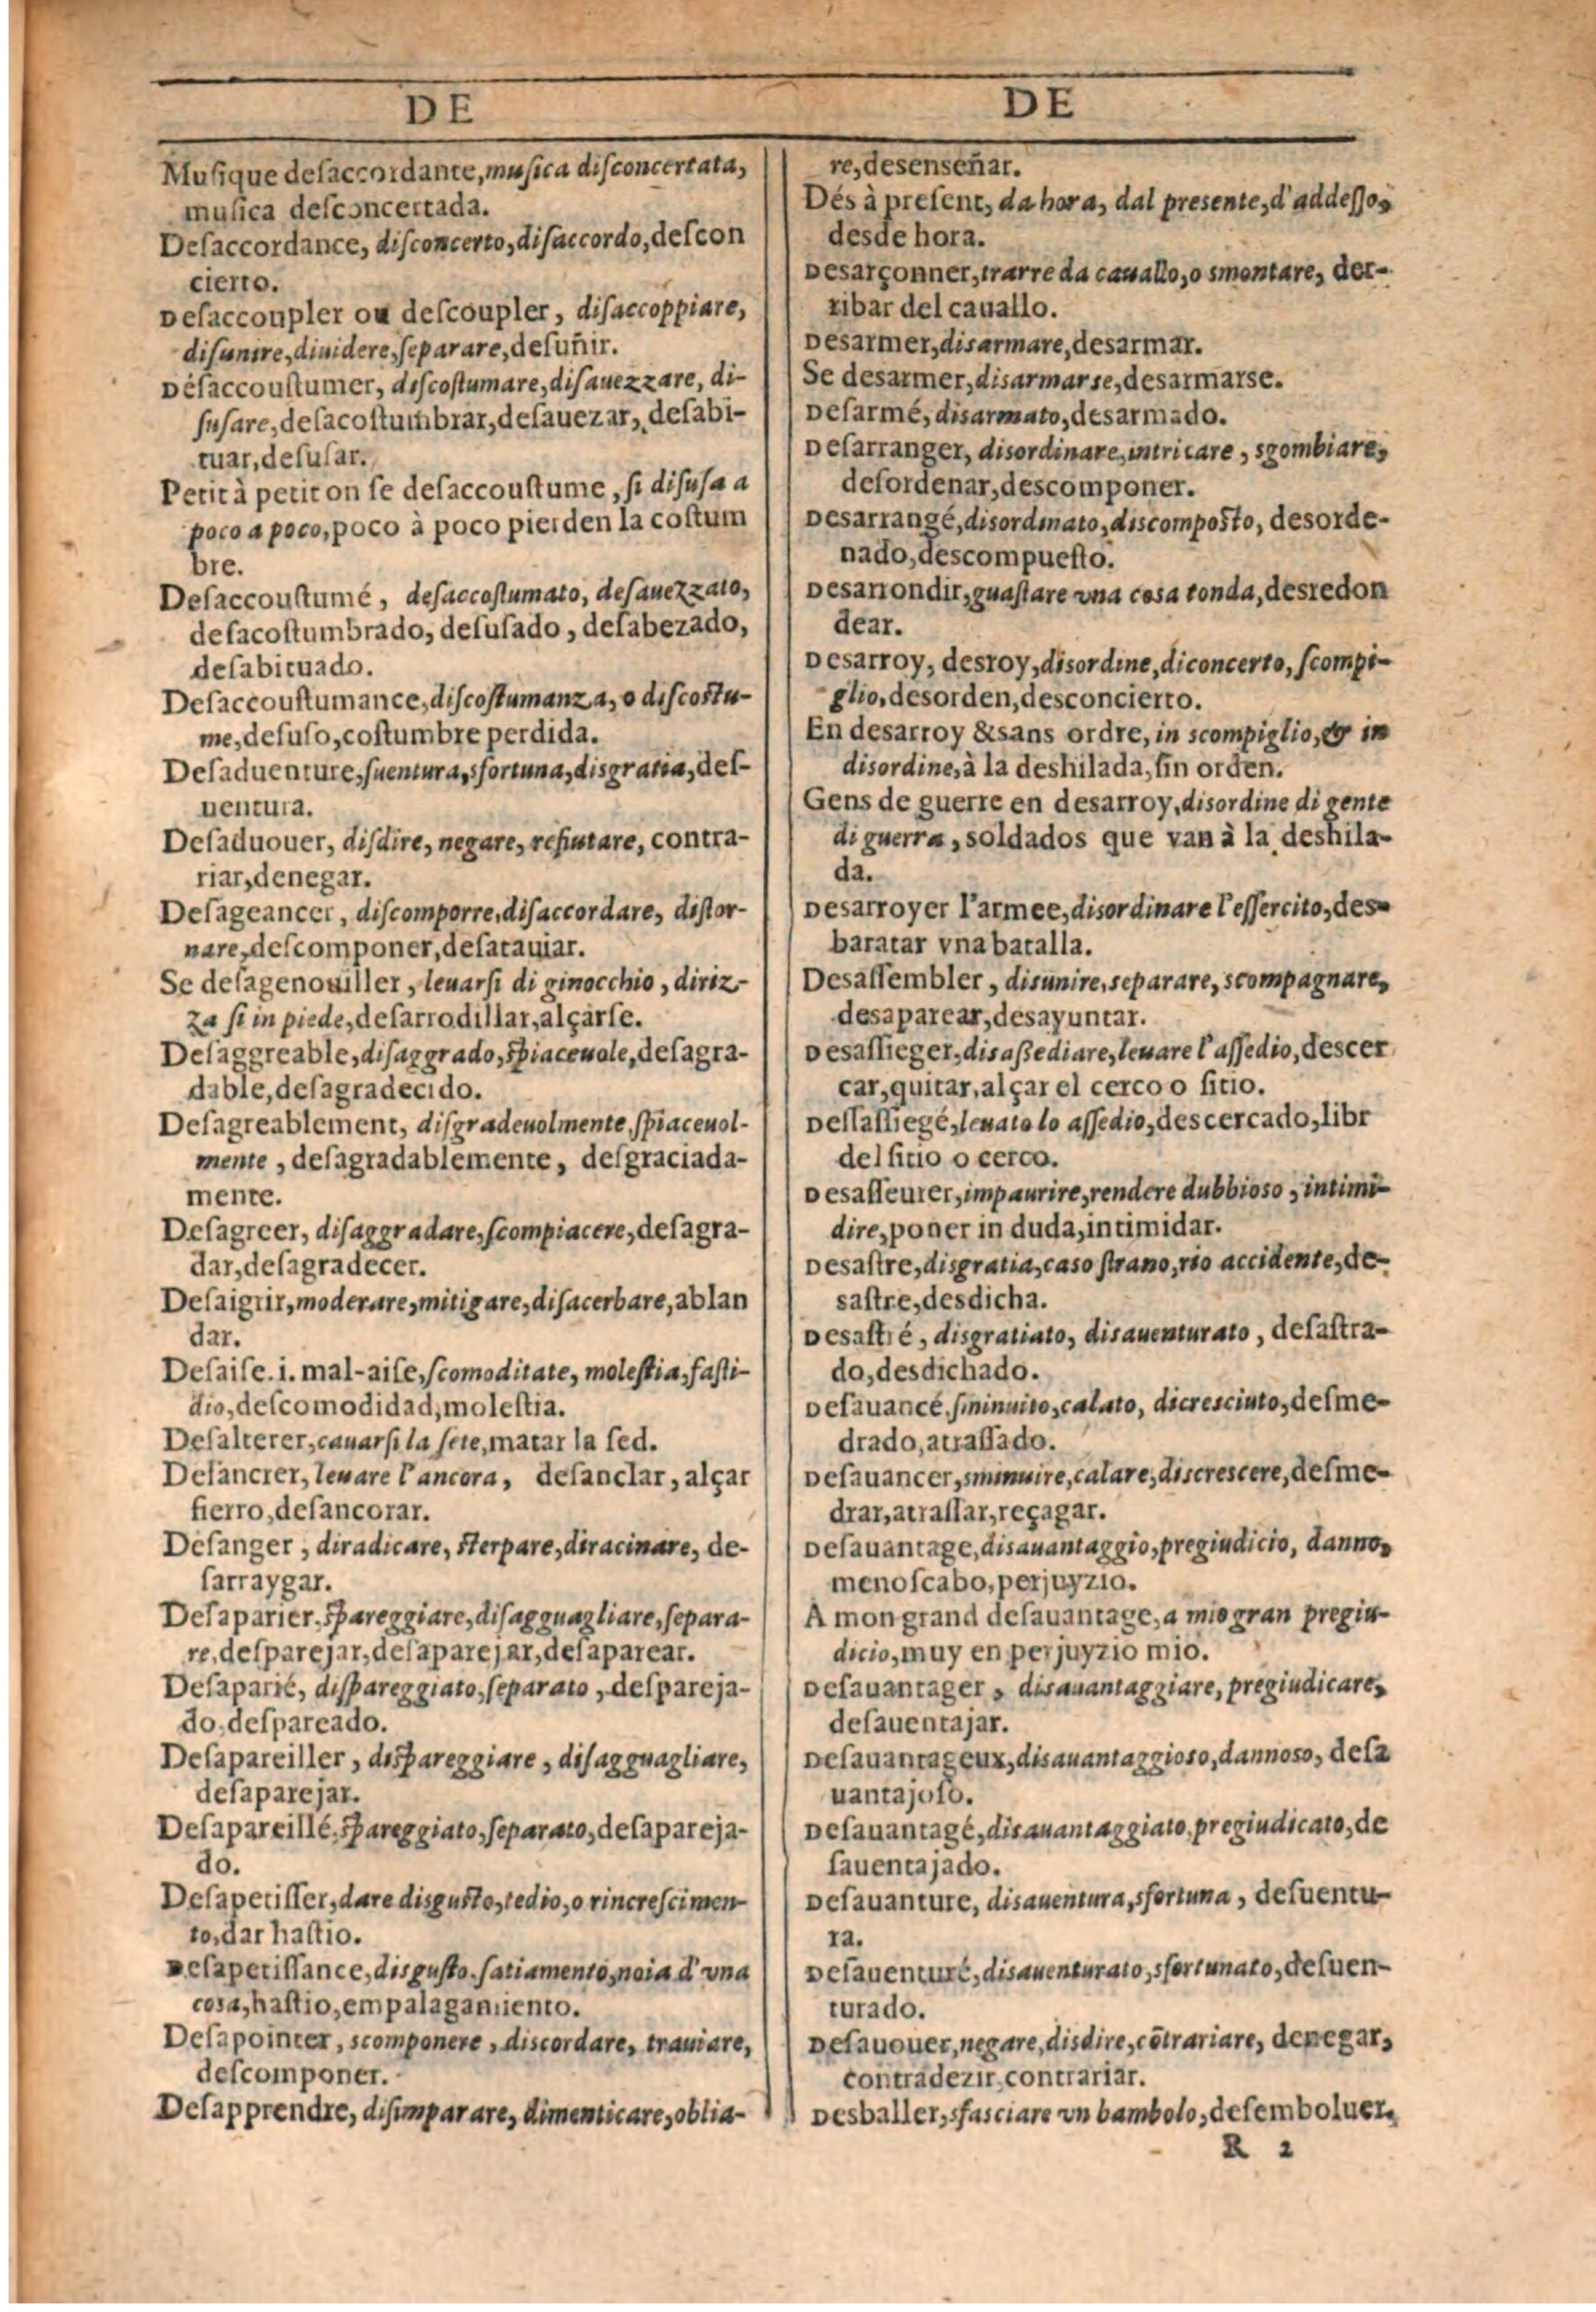 DE
Musique desaccordante, musica disconcertata,
musica desconcertada.
Desaccordance, disconcerto, disaccordo, descon
cierto.
Desaccoupler ou descoupler, disaccoppiare,
disunire, diuidere, separare, desuñir.
Desaccoustumer, discostumare, disauezzare, di-
susare, desacostumbrar, desauezar, desabi-
tuar, desusar.
Petit à petit on se desaccoustume, si disusa a
poco a poco, poco à poco pierden la costum
bre.
Desaccoustumé, desaccostumato, desauezzato,
desacostumbrado, desusado, desabezado,
desabituado.
Desaccoustumance, discostumanza, o discostu-
me, desuso, costumbre perdida.
Desaduenture, suentura, sfortuna, disgratia, des-
uentura.
Desaduouer, disdire, negare, refiutare, contra-
riar, denegar.
Desageancer, discomporre, disaccordare, distor-
nare, descomponer, desatauiar.
Se desagenouiller, leuarsi di ginocchio, diriz-
za si in piede, desarrodillar, alçarse.
Desaggreable, disaggrado, spiaceuole, desagra-
dable, desagradecido.
Desagreablement, disgradeuolmente, spiaceuol-
mente, desagradablemente, desgraciada-
mente.
Desagreer, disaggradare, scompiacere, desagra-
dar, desagradecer.
Desaigrir, moderare, mitigare, disacerbare, ablan
dar.
Desaise. i. mal-aise, scomoditate, molestia, fasti-
dio, descomodidad, molestia.
Desalterer, cauarsi la sete, matar la sed.
Desancrer, leuare l'ancora, desanclar, alçar
fierro, desancorar.
Desanger, diradicare, sterpare, diracinare, de-
sarraygar.
Desaparier, spareggiare, disagguagliare, separa-
re, desparejar, desaparejar, desaparear.
Desaparié, dispareggiato, separato, despareja-
do, despareado.
Desapareiller, dispareggiare, disagguagliare,
desaparejar.
Desapareillé, spareggiato, separato, desapareja-
do.
Desapetisser, dare disgusto, tedio, o rincrescimen-
to, dar hastio.
Desapetissance, disgusto, satiamento, noia d'vna
cosa, hastio, empalagamiento.
Desapointer, scomponere, discordare, trauiare,
descomponer.
Desapprendre, disimparare, dimenticare, oblia-
DE
re, desenseñar.
Dés à present, da hora, dal presente, d'addesso,
desde hora.
Desarçonner, trarre da cauallo, o smontare, der-
ribar del cauallo.
Desarmer, disarmare, desarmar.
Se desarmer, disarmarse, desarmarse.
Desarmé, disarmato, desarmado.
Desarranger, disordinare, intricare, sgombiare,
desordenar, descomponer.
Desarrangé, disordinato, discomposto, desorde-
nado, descompuesto.
Desarrondir, guastare vna cosa tonda, desredon
dear.
Desarroy, desroy, disordine, diconcerto, scompi-
glio, desorden, desconcierto.
En desarroy & sans ordre, in scompiglio, & in
disordine, à la deshilada, sin orden.
Gens de guerre en desarroy, disordine di gente
di guerra, soldados que van à la deshila-
da.
Desarroyer l'armee, disordinare l'essercito, des-
baratar vna batalla.
Desassembler, disunire, separare, scompagnare,
desaparear, desayuntar.
Desassieger, disassediare, leuare l'assedio, descer
car, quitar, alçar el cerco o sitio.
Dessassiegé, leuato lo assedio, descercado, libr
del sitio o cerco.
Desasseurer, impaurire, rendere dubbioso, intimi-
dire, poner in duda, intimidar.
Desastre, disgratia, caso strano, rio accidente, de-
sastre, desdicha.
Desastré, disgratiato, disauenturato, desastra-
do, desdichado.
Desauancé, sminuito, calato, dicresciuto, desme-
drado, atrassado.
Desauancer, sminuire, calare, discrescere, desme-
drar, atrassar, reçagar.
Desauantage, disauantaggio, pregiudicio, danno,
menoscabo, perjuyzio.
A mon grand desauantage, a mio gran pregiu-
dicio, muy en perjuyzio mio.
Desauantager, disauantaggiare, pregiudicare,
desauentajar.
Desauantageux, disauantaggioso, dannoso, desa
uantajoso.
Desauantagé, disauantaggiato, pregiudicato, de
sauentajado.
Desauanture, disauentura, sfortuna, desuentu-
ra.
Desauenturé, disauenturato, sfortunato, desuen-
turado.
Desauouer, negare, disdire, cõtrariare, denegar,
contradezir, contrariar.
Desballer, sfasciare vn bambolo, desemboluer.
R 2